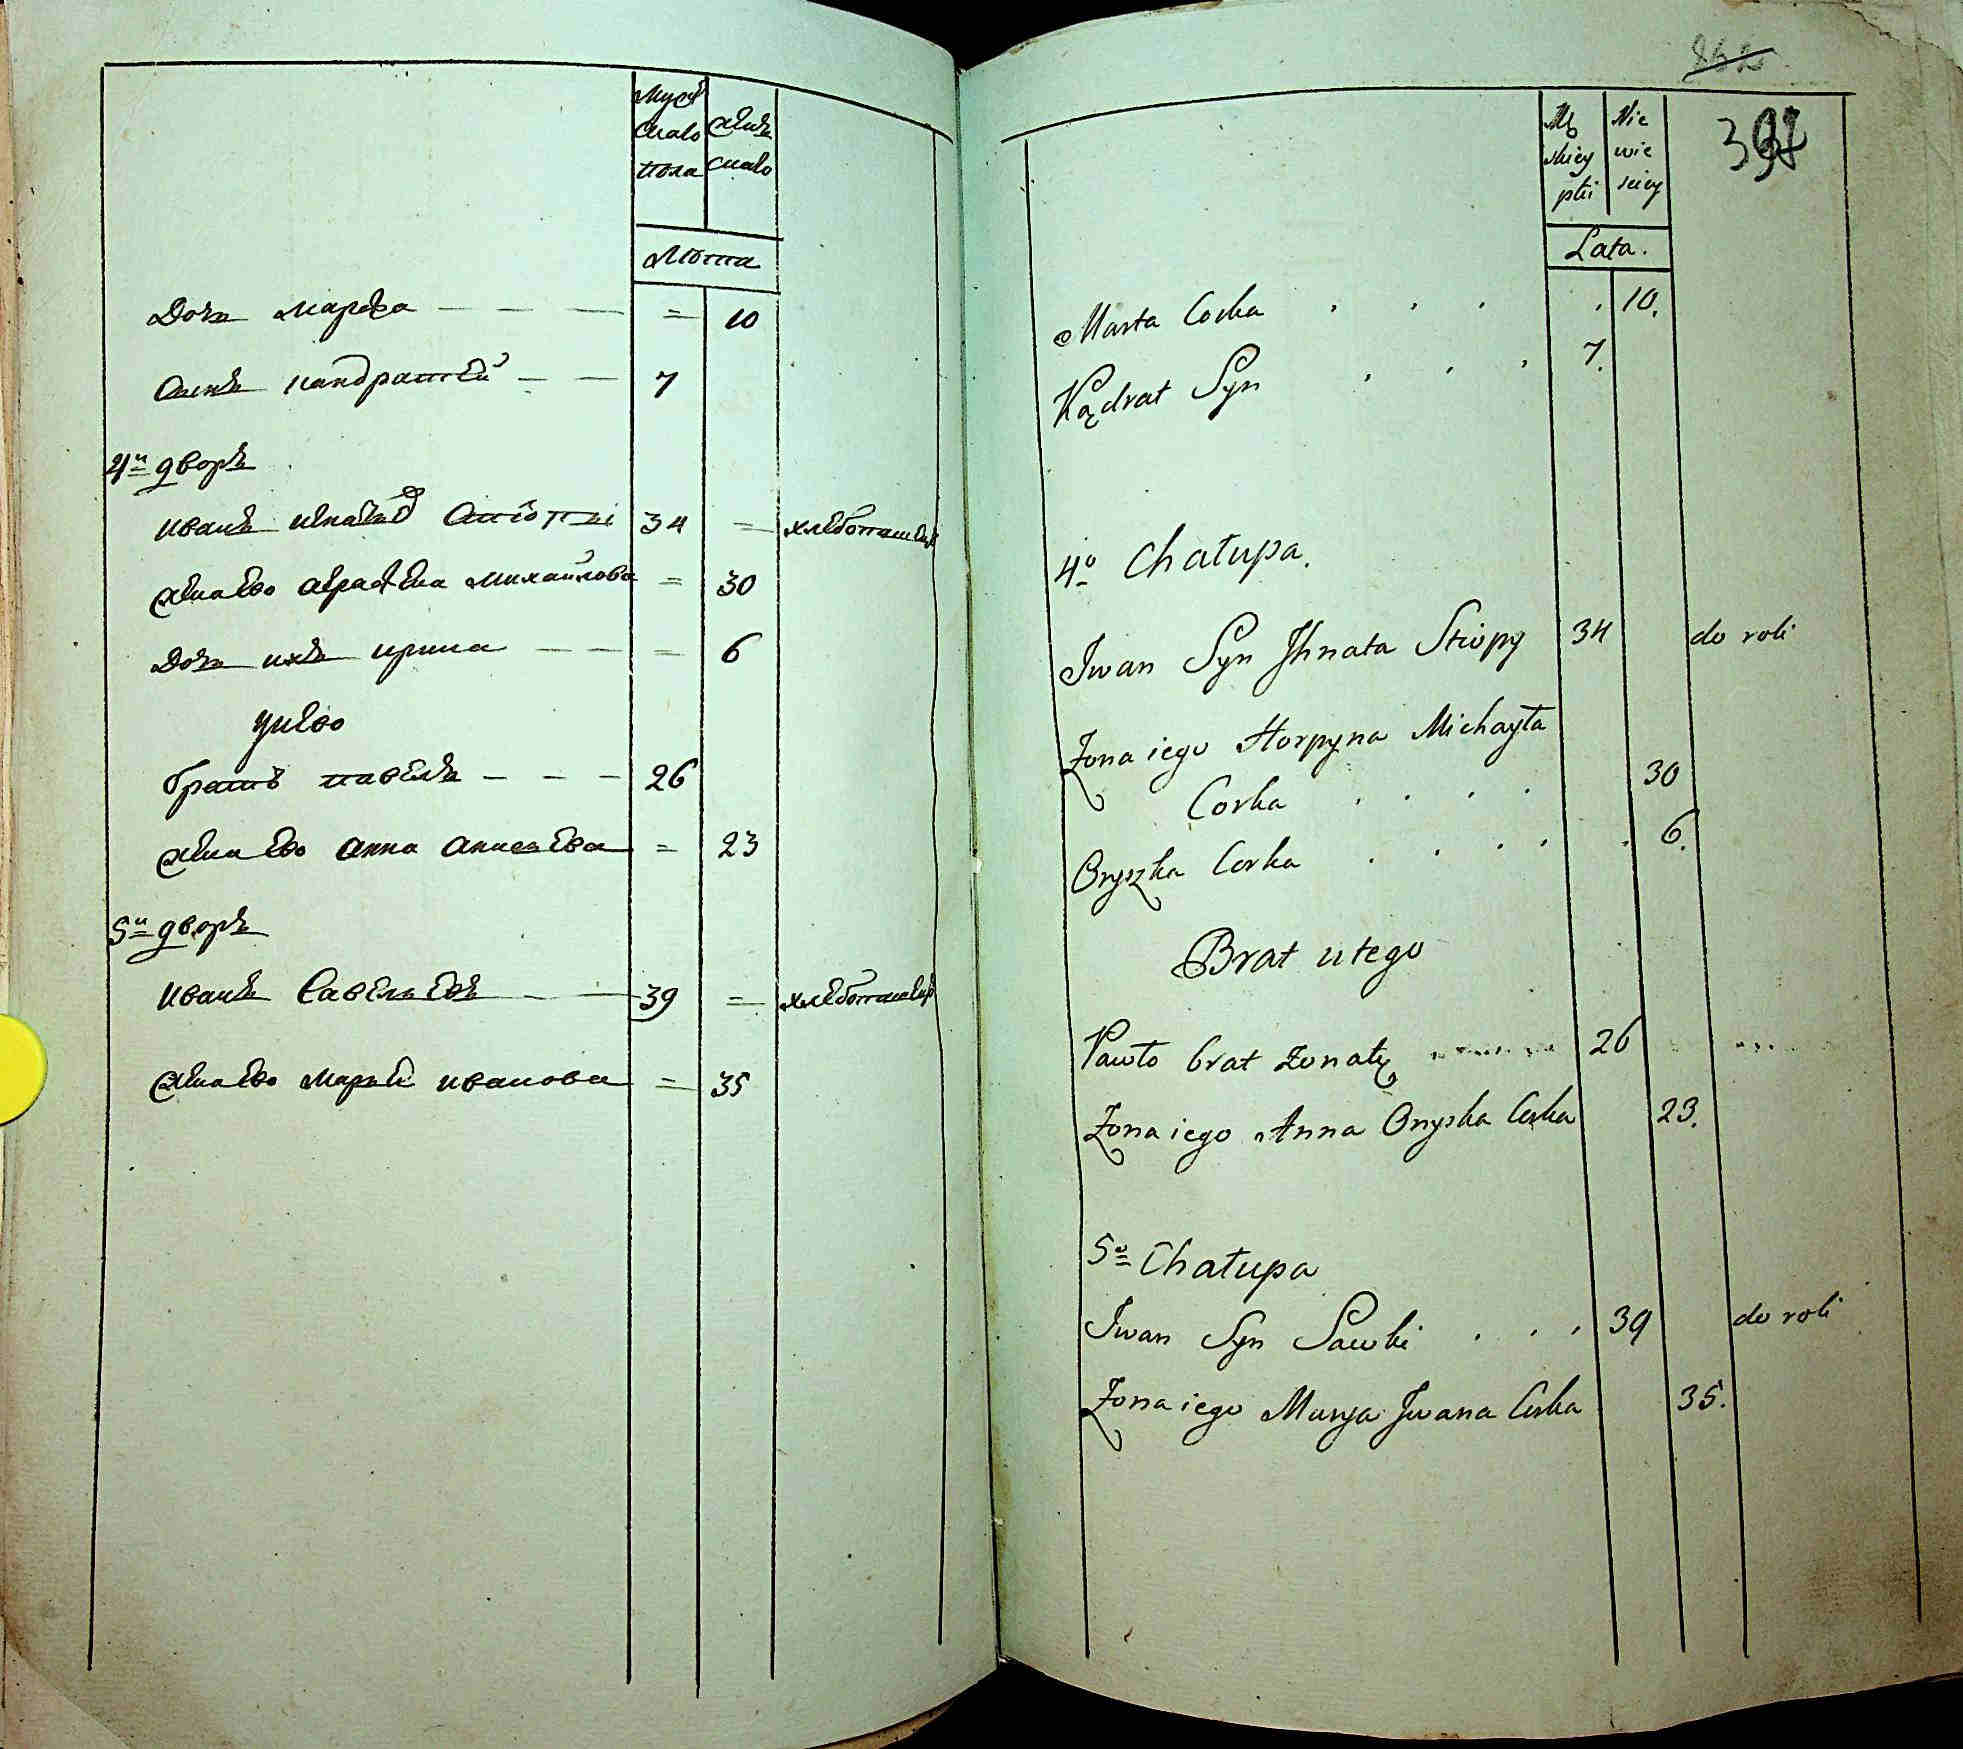 Муж
скаго
пола
Жен
скаго
Лѣта
Дочь марѳа — — — = 10
Сынъ кондратей — — 7
4й дворъ
иванъ игнатьев Стіопы 34 = хлебопашецъ
жена ево аграфена михайлова = 30
Дочь ихъ ирина — — = 6
унево
братъ павелъ — — — 26
жена ево анна анисьева = 23
5й дворъ
иванъ Савельевъ — — 39 = хлебопашецъ
жена ево марья иванова = 35
Mę
skiey
płci
Nie
wie
sciey
Lata.
Marta Corka . . . . 10.
Kądrat Syn . . . 7.
4o Chałupa.
Jwan Syn Jhnata Stiopy 34 do roli
Żona iego Horpyna Michayła
Corka . . . . 30
Oryszka Corka . . . . . 6.
Brat utego
Pawło brat żonaty 26
Żona iego Anna Onyska Corka 23.
5o Chałupa
Jwan Syn Sawki . . . 39 do roli
Żona iego Marya Jwana Corka 35.